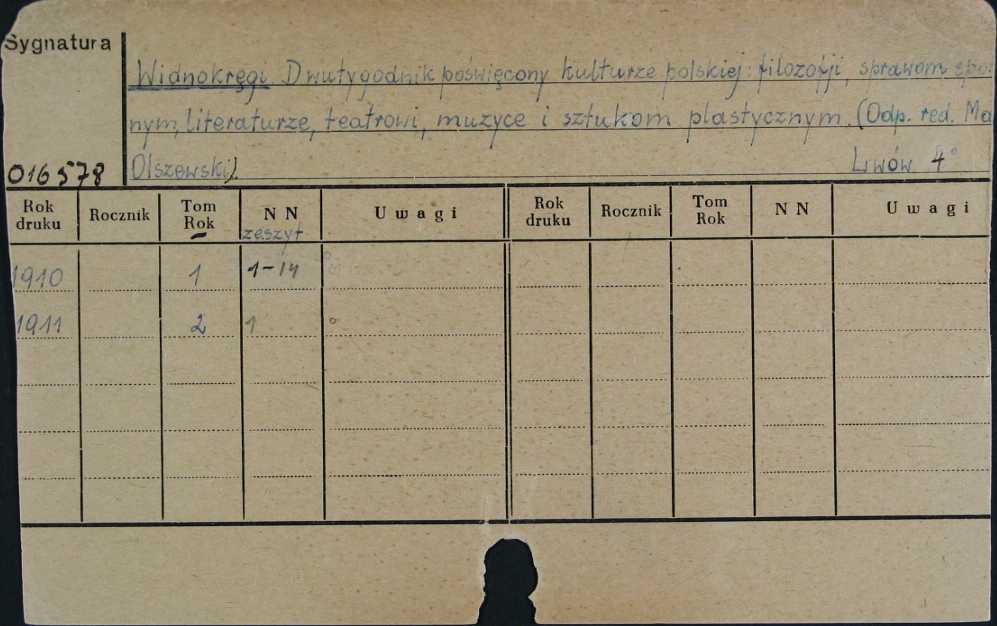 Sygnatura
Widnokręgi Dwutygodnik poświęcony kulturze polskiej: filozofji, sprawom społ
nym, literaturze, teatrowi, muzyce i sztukom plastycznym. (Odp. red. Ma
016578 Olszewski). Lwów 4°
Rok druku Rocznik Tom Rok NN zeszyt Uwagi Rok druku Rocznik Tom Rok NN Uwagi
1910 1 1-14
1911 2 1 °